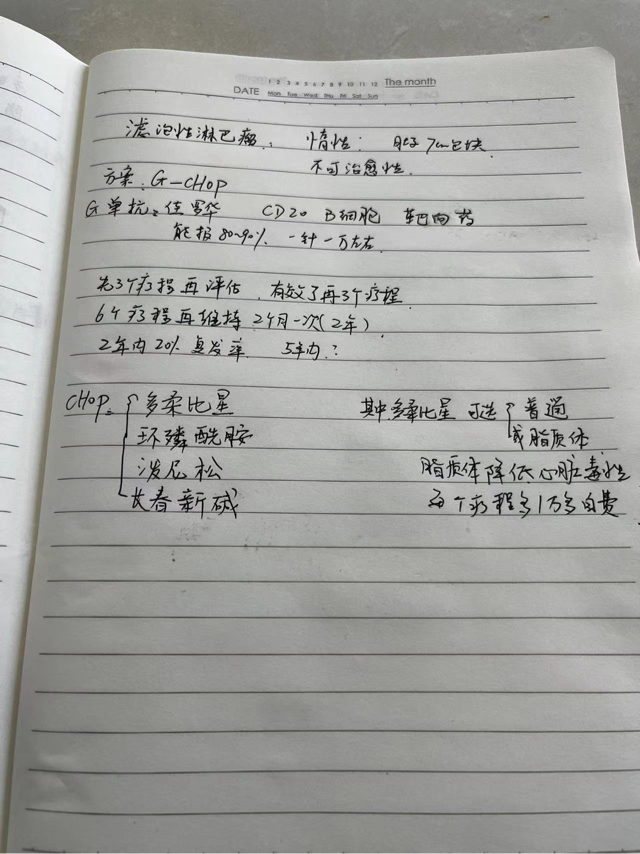 1 2 3 4 5 6 7 8 9 10 11 12 The month
DATE Mon Tue Wed Thu Fri Sat Sun
滤泡性淋巴瘤. 惰性: 7cm包块
不可治愈性.
方案: G-CHOP
G单抗: 佳罗华 CD20 B细胞 靶向药
能报80~90%. 一针一万左右
先3个疗程再评估. 有效了再3个疗程
6个疗程再维持 2个月一次(2年)
2年内20%复发率. 5年内?
CHOP: 多柔比星 其中多柔比星可选 普通
环磷酰胺 或脂质体
泼尼松 脂质体降低心脏毒性
长春新碱 每个疗程多1万多自费